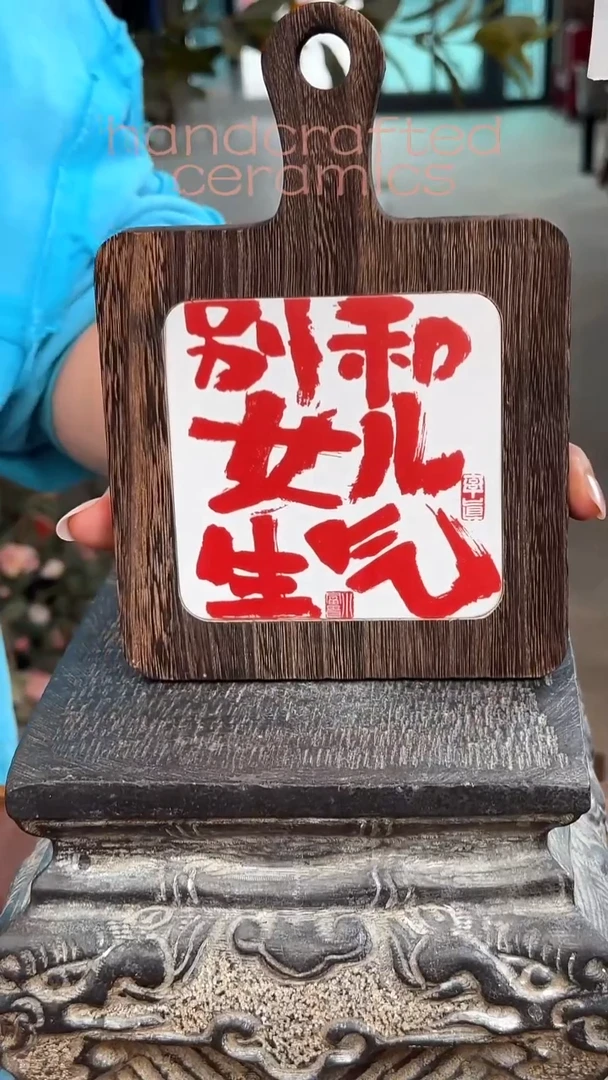 handcrafted
ceramics
别和
女儿
生气